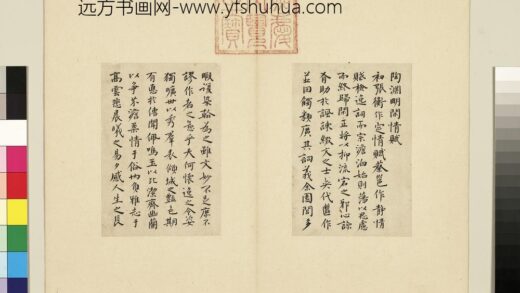 远方书画网-www.yfshuhua.com
陶淵明閑情賦
初張衡作定情賦蔡邕作静情
賦檢逸詞而宗澹泊始則蕩以思慮
而終歸閑正將以抑流宕之邪心諒
有助於諷諫綴文之士奕代繼作
並因觸類廣其詞義余園閭多
暇復染翰為之雖文妙不足庶不
謬作者之意乎夫何懷逸之令姿
獨曠世以秀羣表傾城之豔色期
有德於傳聞佩鳴玉以比潔齊幽蘭
以爭芬澹柔情于俗內負雅志于
高雲悲晨曦之易夕感人生之長